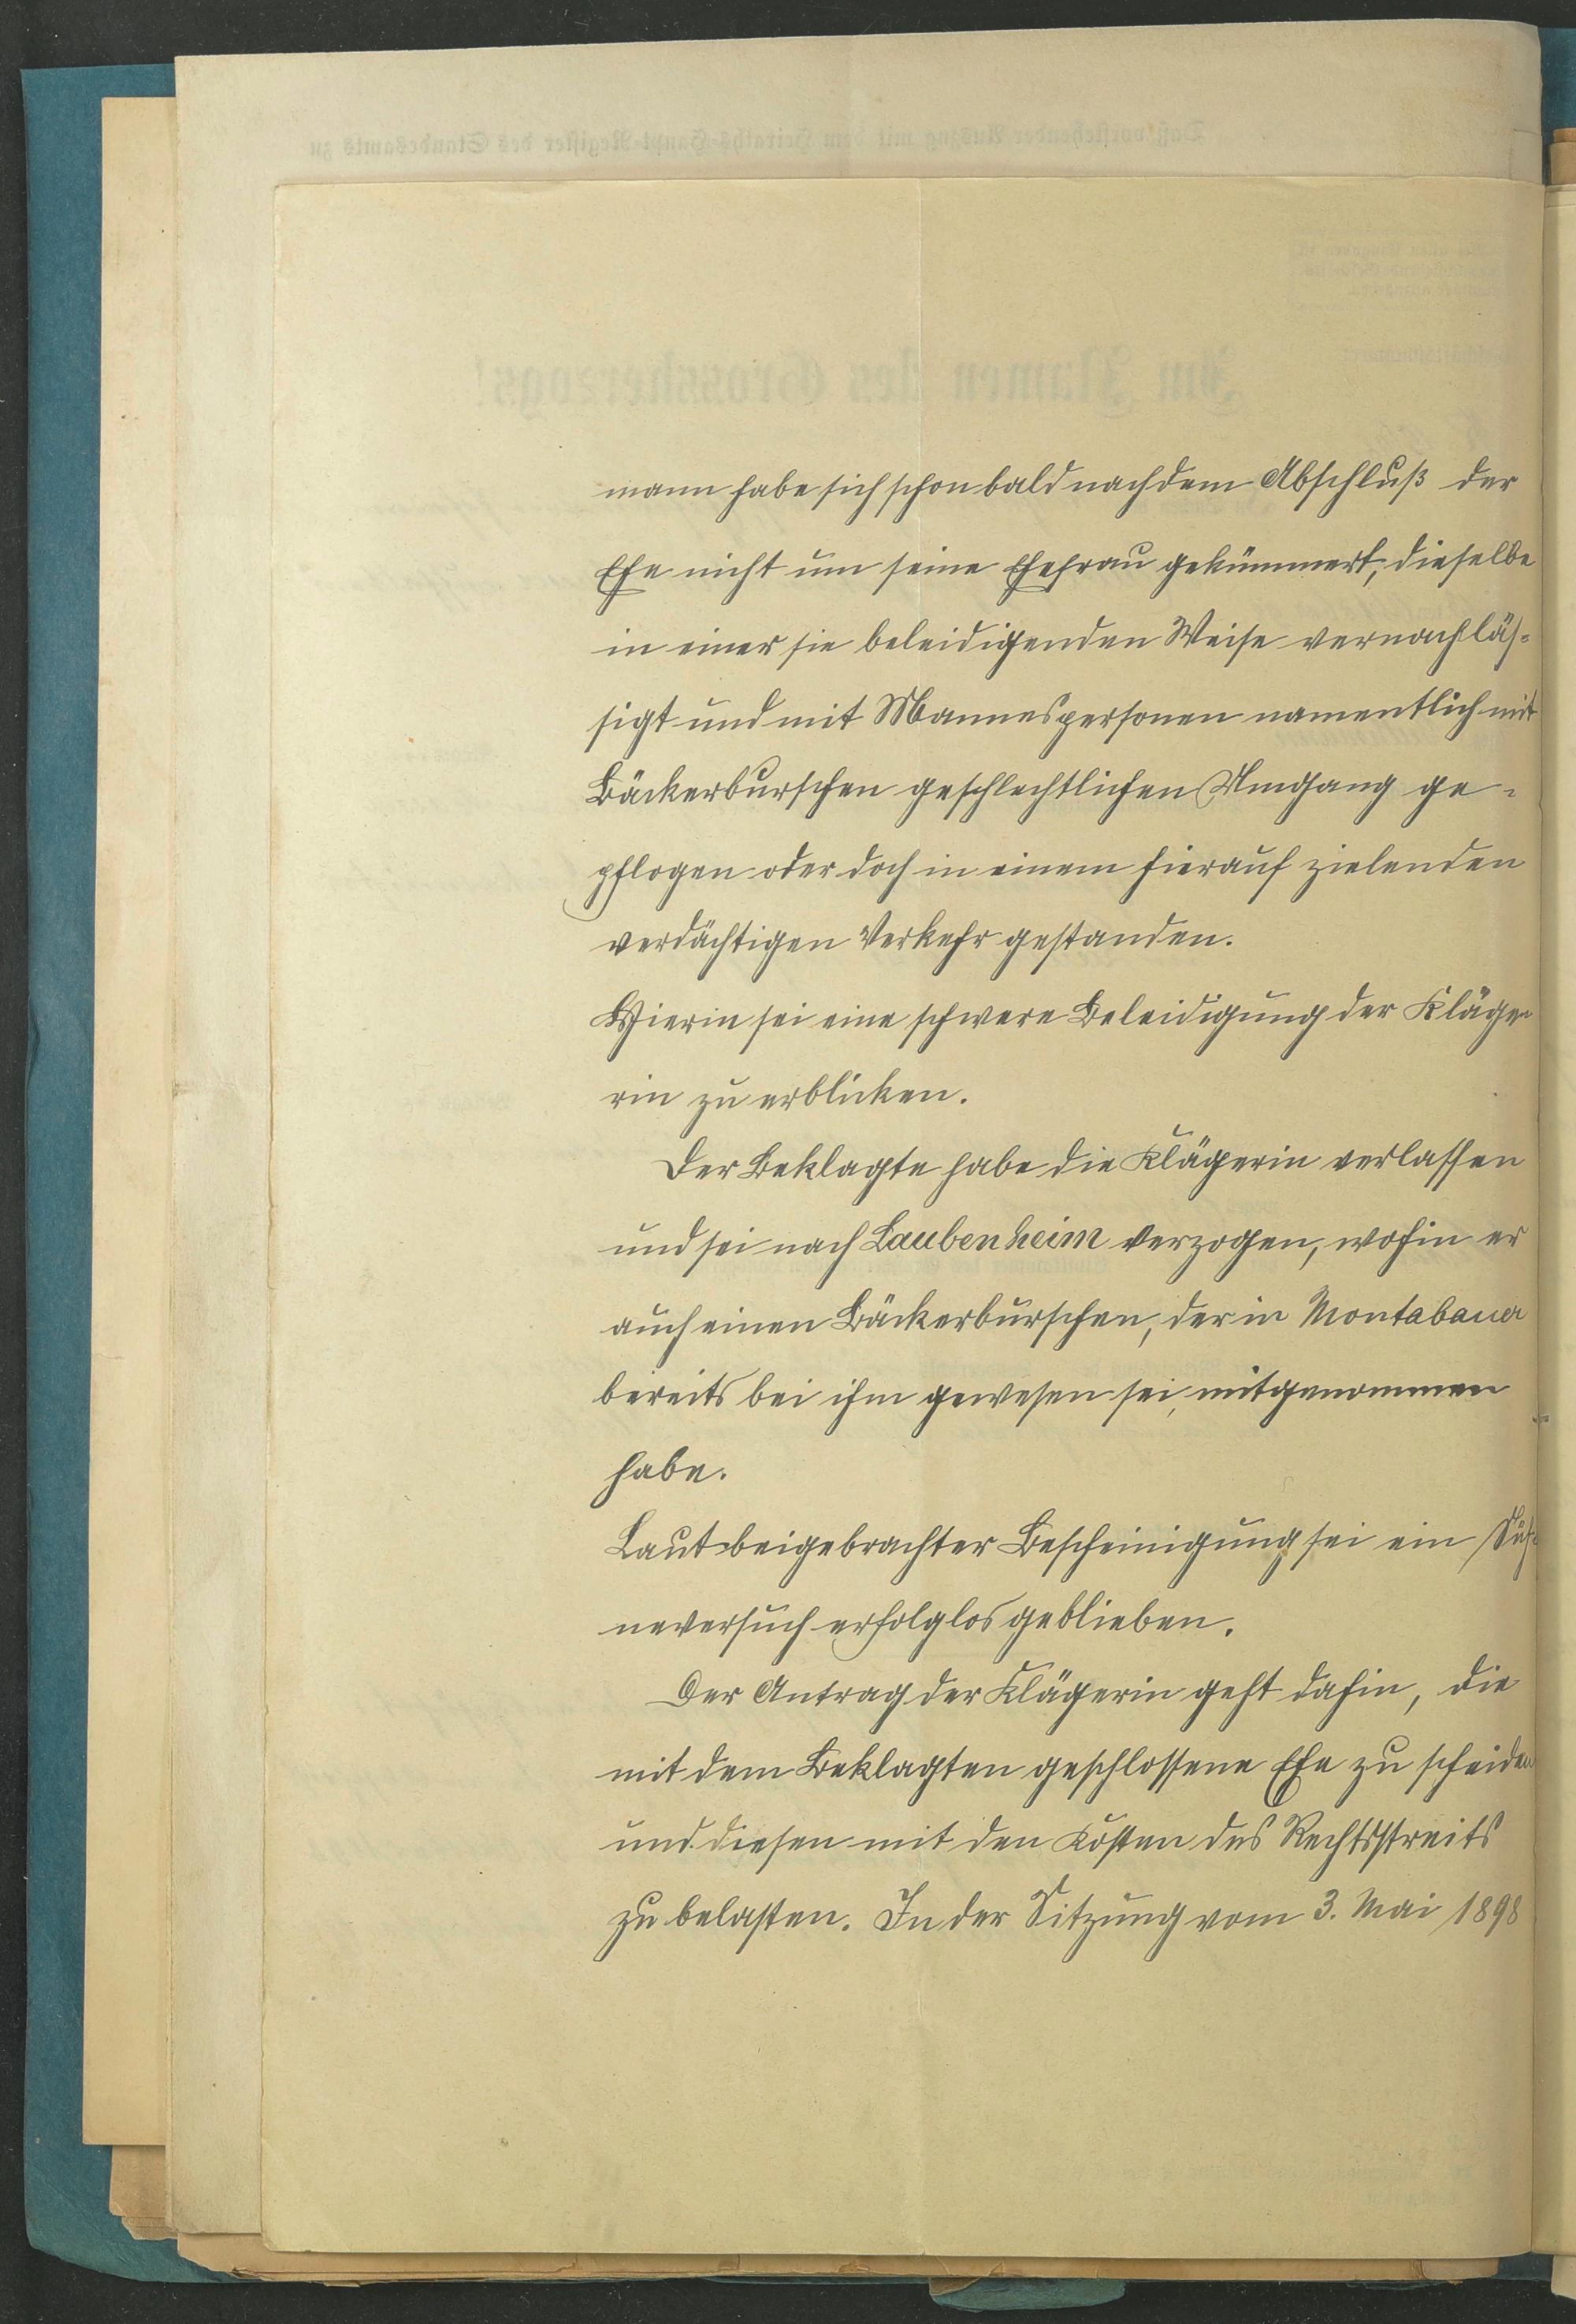 mann habe sich schon bald nach dem Abschluß der
Ehe nicht um seine Ehefrau gekümmert, dieselbe
in einer sie beleidigenden Weise vernachläs-
sigt und mit Mannespersonen namentlich mit
Bäckerburschen geschlechtlichen Umgang ge-
pflogen oder doch in einem hierauf zielenden
verdächtigen Verkehr gestanden.
Hierin sei eine schwere Beleidigung der Kläge-
rin zu erblicken.
Der Beklagte habe die Klägerin verlassen
und sei nach Laubenheim verzogen, wohin er
auch einen Bäckerburschen, der in Montabaur
bereits bei ihm gewesen sei, mitgenommen
habe.
Laut beigebrachter Bescheinigung sei ein Süh-
neversuch erfolglos geblieben.
Der Antrag der Klägerin geht dahin, die
mit dem Beklagten geschlossene Ehe zu scheiden
und diesen mit den Kosten des Rechtsstreits
zu belasten. In der Sitzung vom 3. Mai 1898